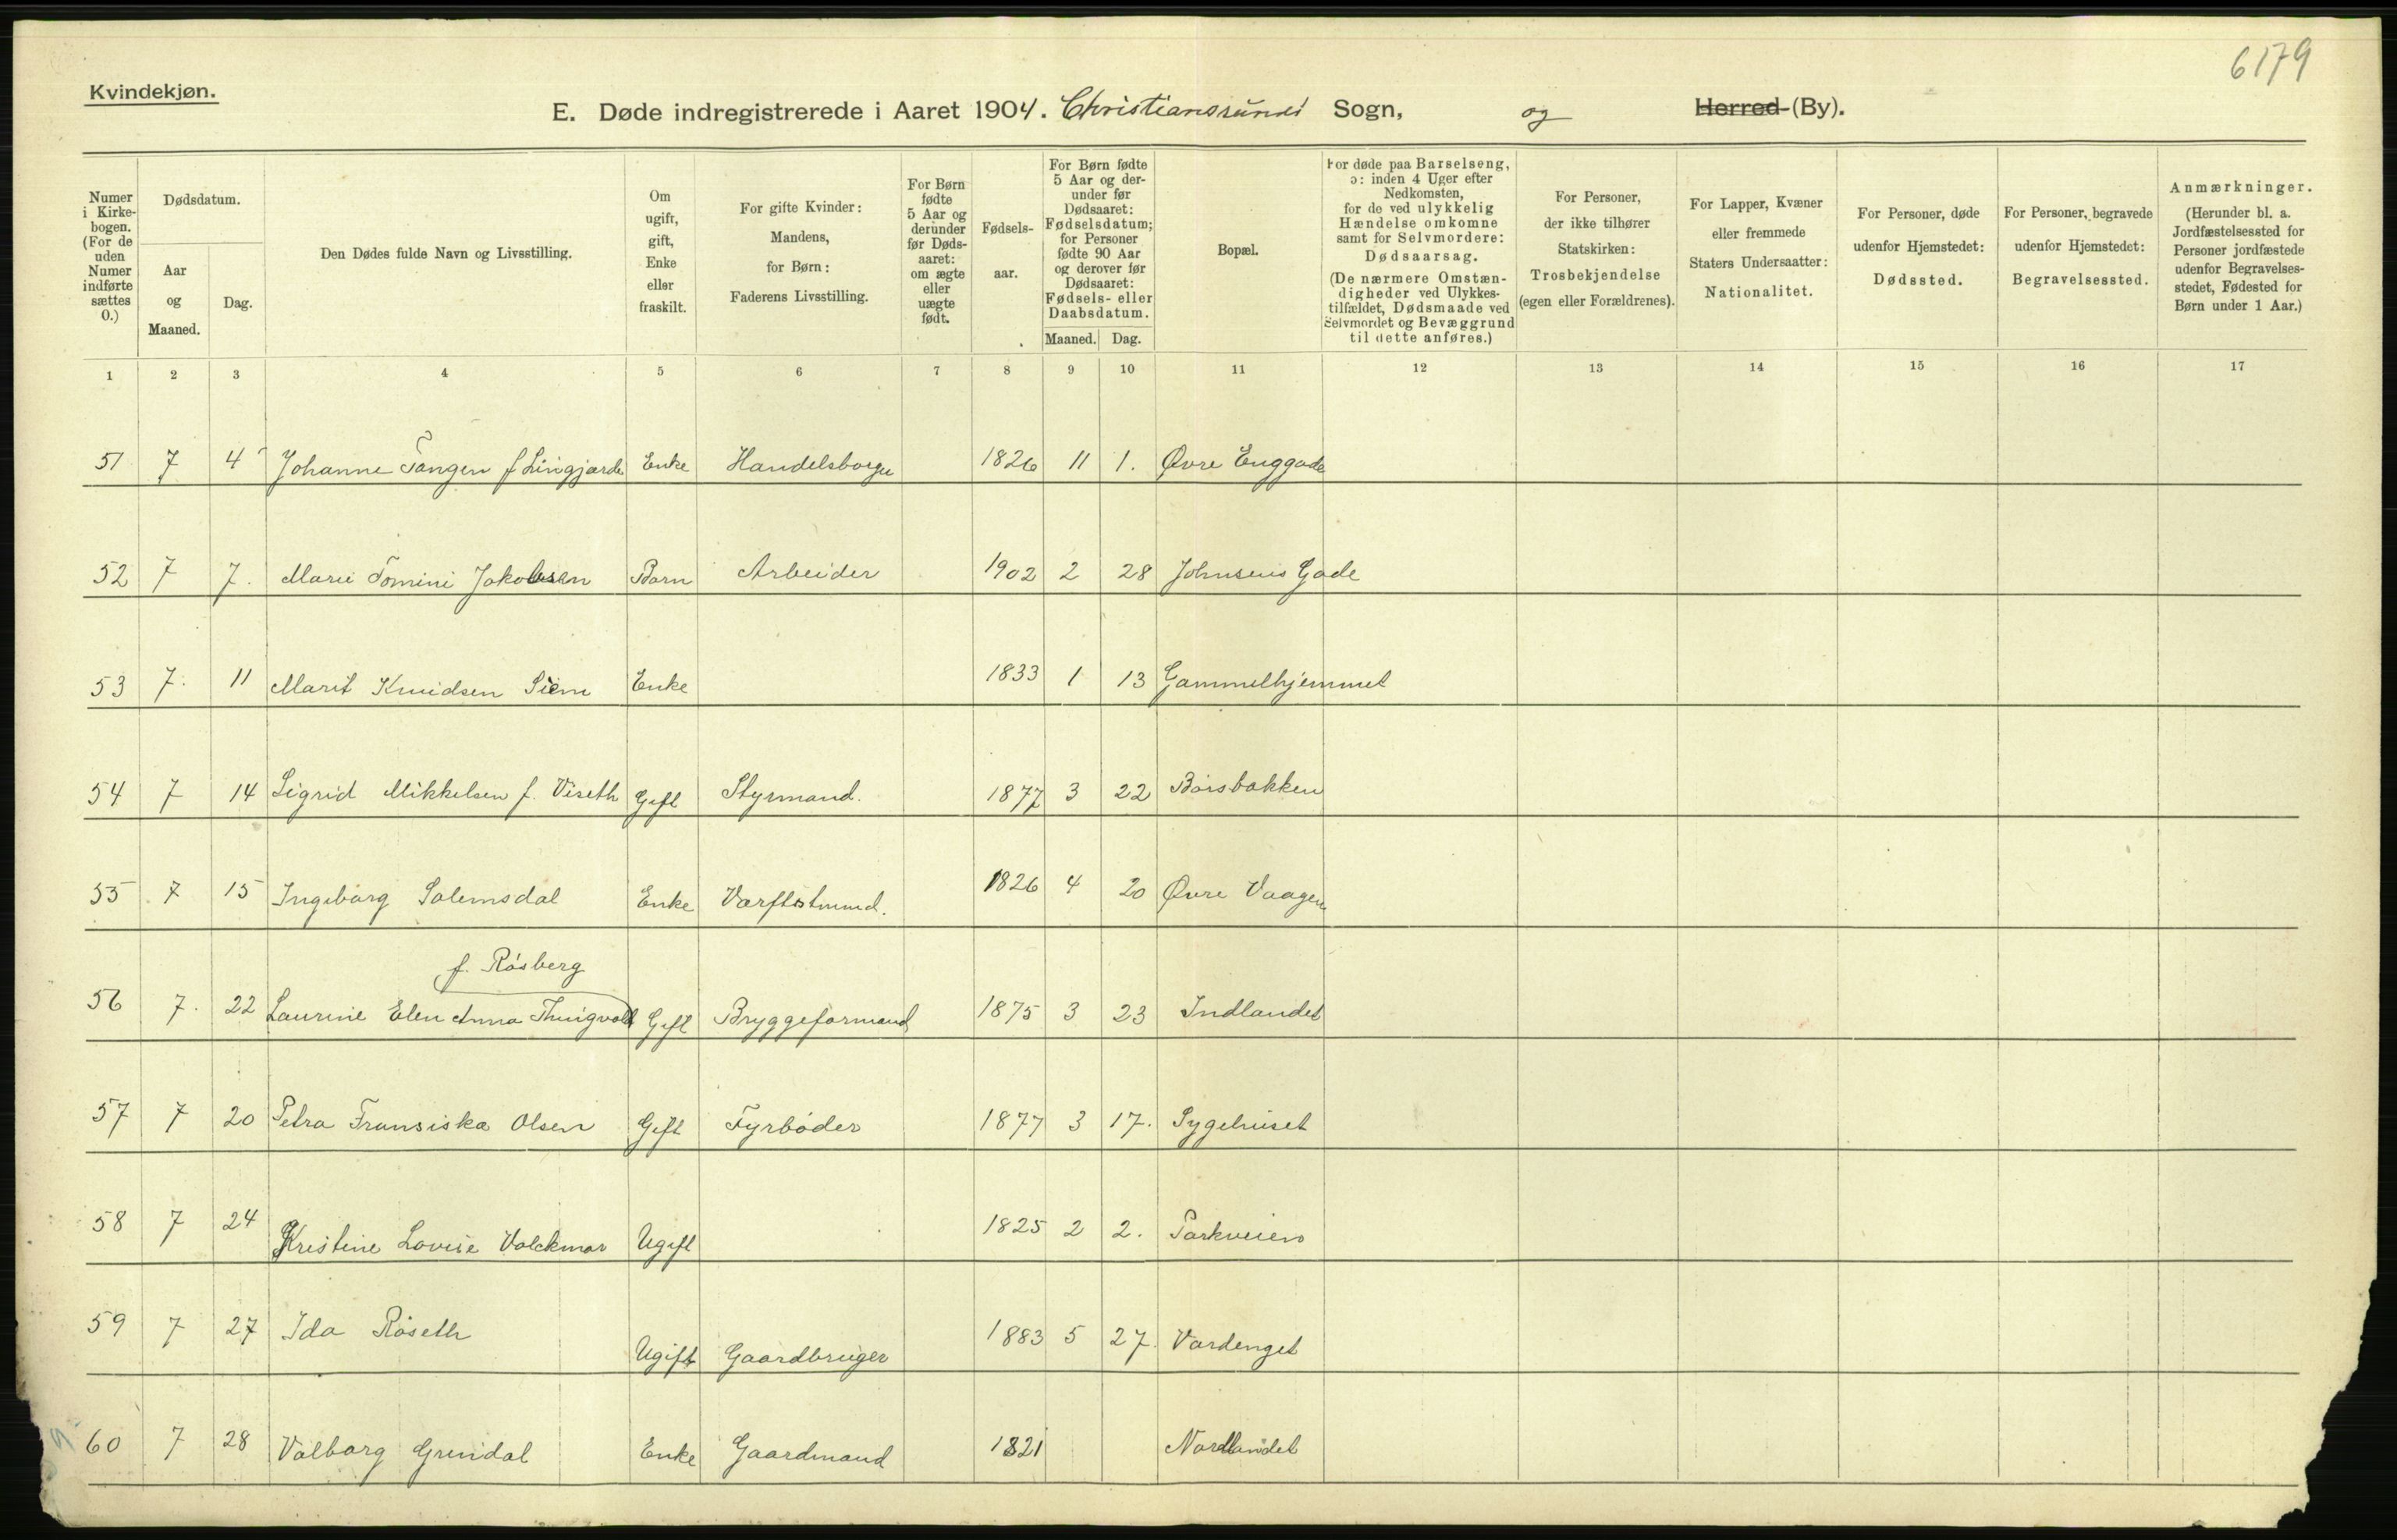 6179
Kvindekjøn.
E. Døde indregistrerede i Aaret 1904. Christianssunds Sogn, og Herred (By).
Numer i Kirkebogen. (For de uden Numer indførte sættes 0.)
Dødsdatum.
Aar og Maaned.
Dag.
Den Dødes fulde Navn og Livsstilling.
Om ugift, gift, Enke eller fraskilt.
For gifte Kvinder: Mandens, for Børn: Faderens Livsstilling.
For Børn fødte 5 Aar og derunder før Dødsaaret: om ægte eller uægte født.
Fødselsaar.
For Børn fødte 5 Aar og derunder før Dødsaaret: Fødselsdatum; for Personer fødte 90 Aar og derover før Dødsaaret: Fødsels- eller Daabsdatum.
Maaned. Dag.
Bopæl.
For døde paa Barselseng, ɔ: inden 4 Uger efter Nedkomsten, for de ved ulykkelig Hændelse omkomne samt for Selvmordere: Dødsaarsag. (De nærmere Omstændigheder ved Ulykkestilfældet, Dødsmaade ved Selvmordet og Bevæggrund til dette anføres.)
For Personer, der ikke tilhører Statskirken: Trosbekjendelse (egen eller Forældrenes).
For Lapper, Kvæner eller fremmede Staters Undersaatter: Nationalitet.
For Personer, døde udenfor Hjemstedet: Dødssted.
For Personer, begravede udenfor Hjemstedet: Begravelsessted.
Anmærkninger. (Herunder bl. a. Jordfæstelsessted for Personer jordfæstede udenfor Begravelsesstedet, Fødested for Børn under 1 Aar.)
1 2 3 4 5 6 7 8 9 10 11 12 13 14 15 16 17
51 7 4 Johanne Tangen f Lingjærde Enke Handelsborger 1826 11 1. Øvre Enggade
52 7 7. Marie Tomine Jakobsen Barn Arbeider 1902 2 28 Johnsens Gade
53 7. 11 Marit Knudsen Siem Enke 1833 1 13 Gammelhjemmet
54 7 14 Sigrid Mikkelsen f. Viseth Gift Styrmand. 1877 3 22 Børsbakken
55 7 15 Ingeborg Solemsdal Enke 1826 4 20 Øvre Vaagen
f. Røsberg
56 7. 22 Laurine Elen Anna Thingvold Gift Bryggeformand 1875 3 23 Indlandet
57 7 20 Petra Fransiska Olsen Gift Fyrbøder 1877 3 17. Sygehuset
58 7 24 Kristine Lovise Volckmar Ugift 1825 2 2. Parkveien
59 7 27 Ida Røseth Ugift Gaardbruger 1883 5 27. Vardenget
60 7 28 Valborg Grendal Enke Gaardmand 1821 Nordlandet